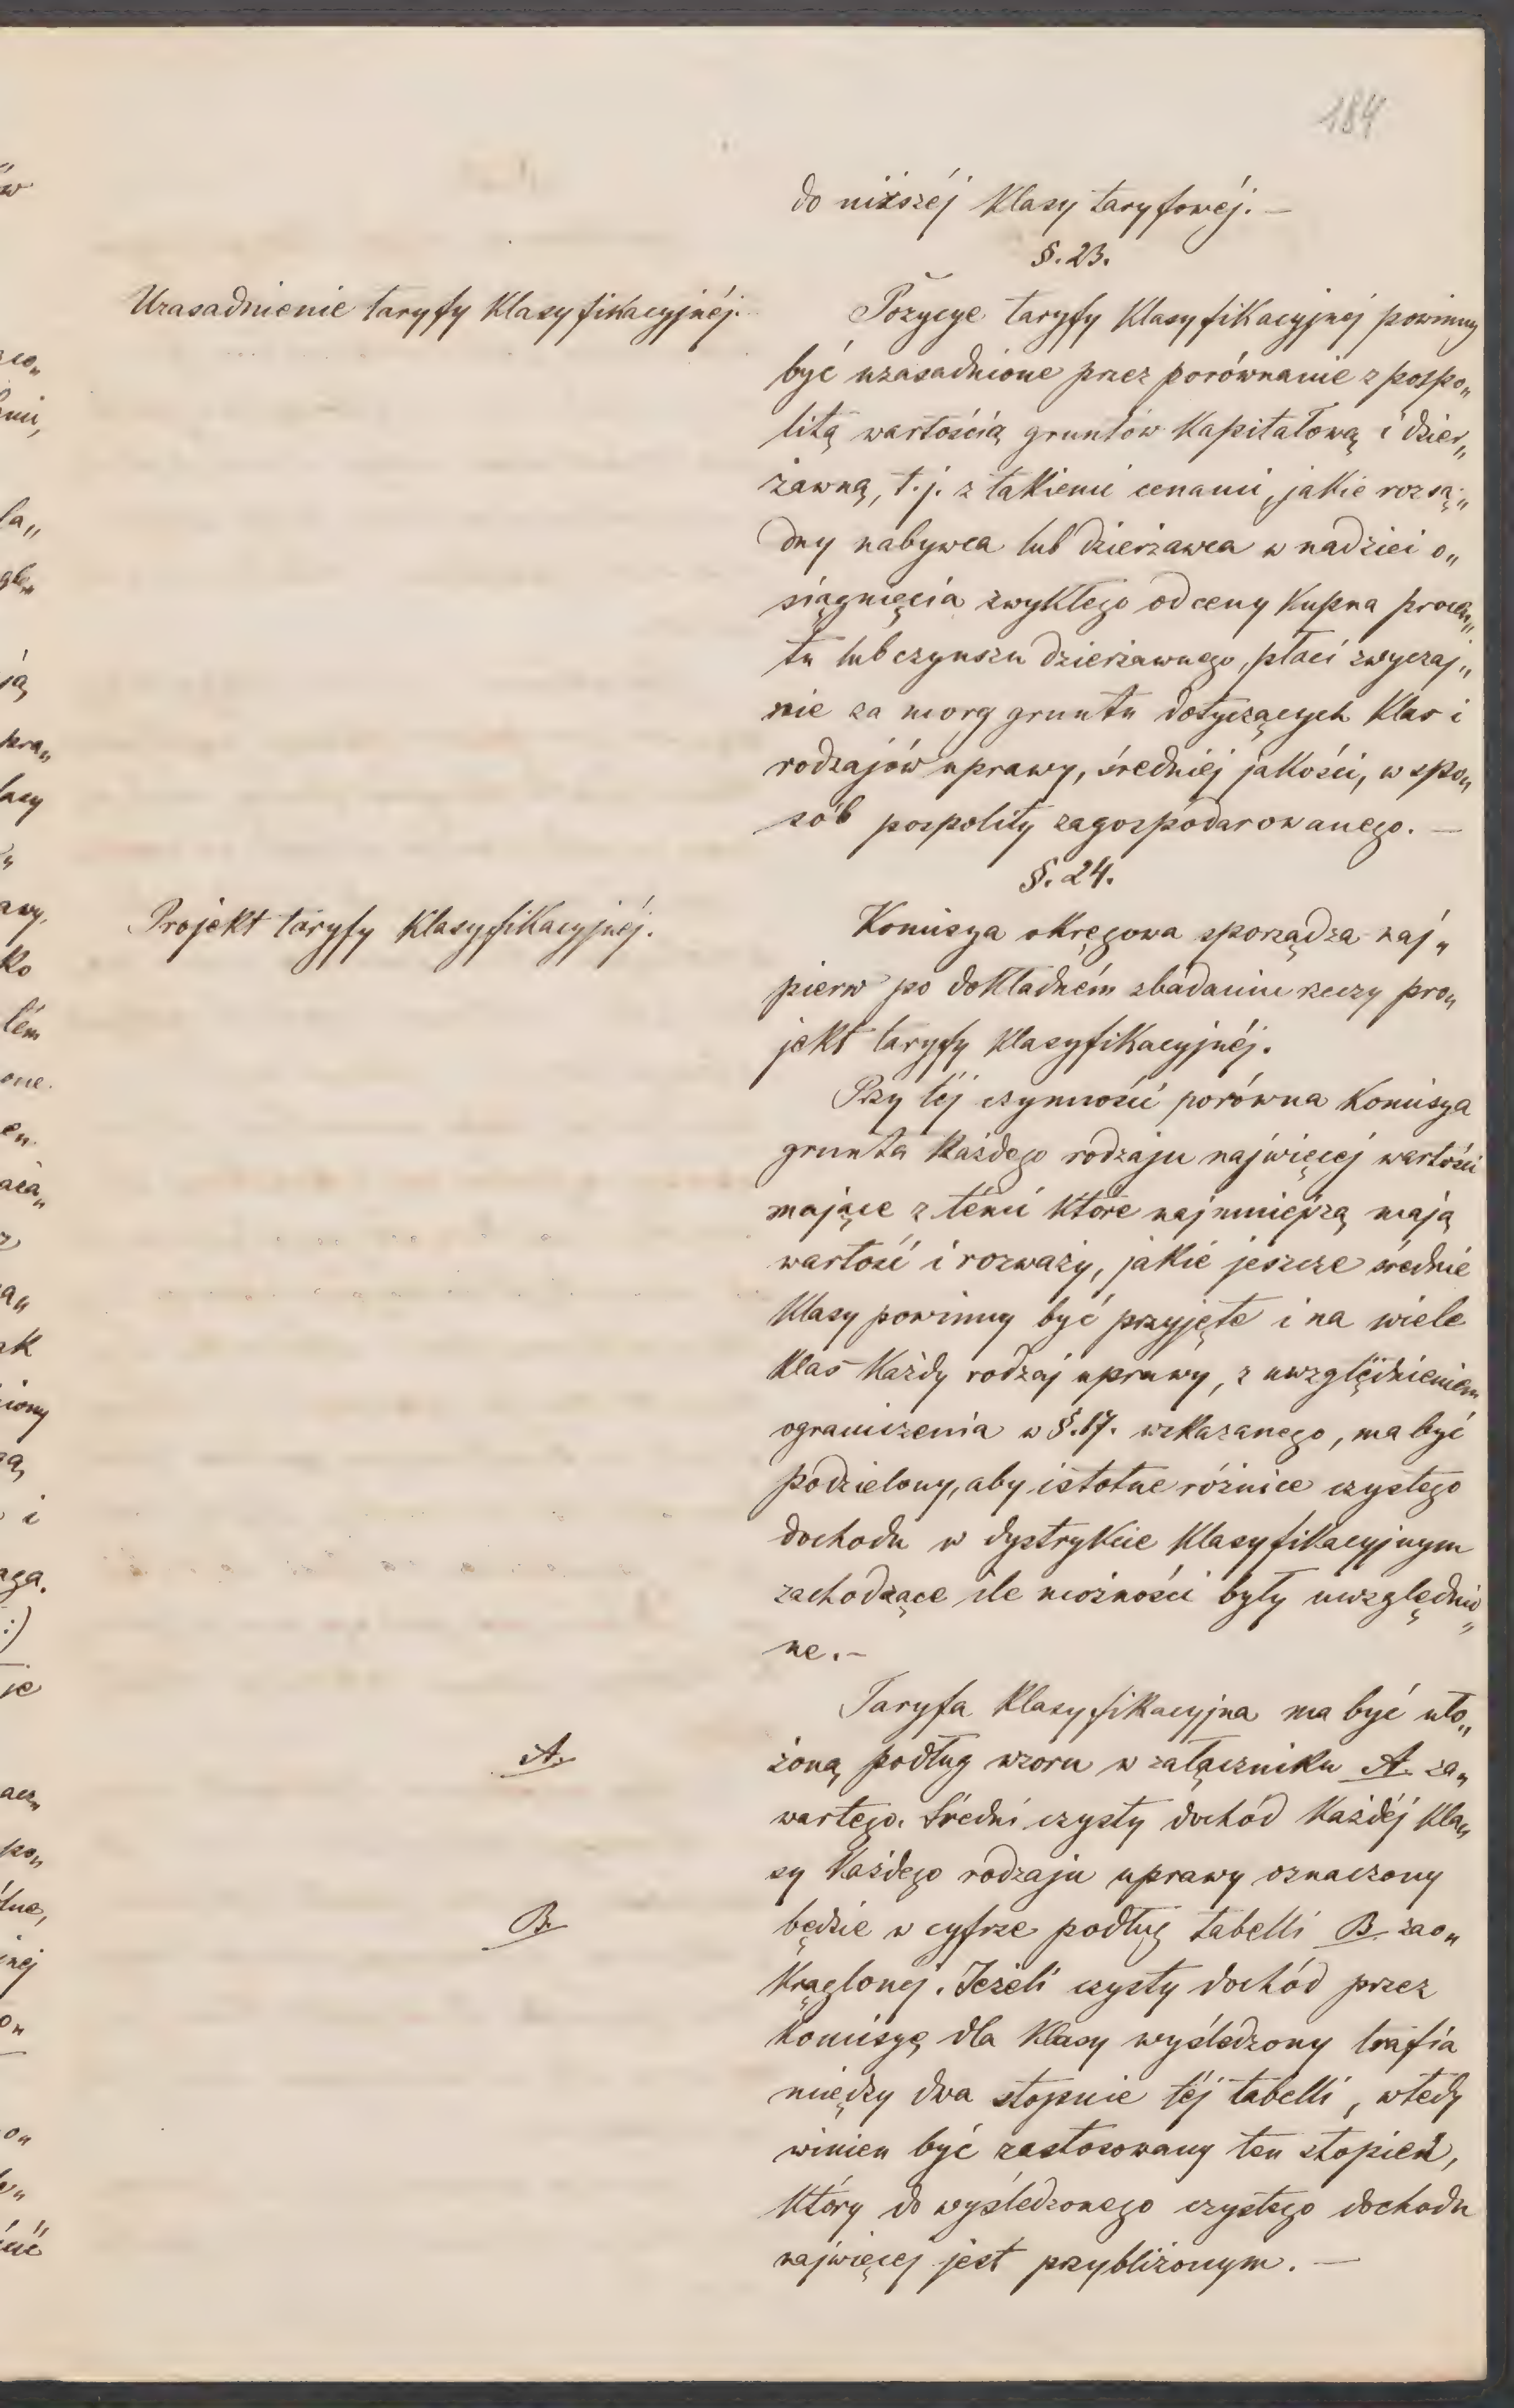 184
do niższéj klasy taryfowéj. —
§. 23.
Uzasadnienie taryfy klasyfikacyjnéj.
Pozycye taryfy klasyfikacyjnéj powinny
być uzasadnione przez porównanie z pospo„
litą wartością gruntów kapitałową i dzier„
żawną, t. j. z takiemi cenami, jakie rozsą„
dny nabywca lub dzierżawca w nadziei o„
siągnięcia zwykłego od ceny kupna procen„
tu lub czynszu dzierżawnego, płaci zwyczaj„
nie za morg gruntu dotyczących klas i
rodzajów uprawy, średniéj jakości, w spo„
sób pospolity zagospodarowanego. —
§. 24.
Projekt taryfy klasyfikacyjnéj.
Komisya okręgowa sporządza naj„
pierw po dokładném zbadaniu rzeczy pro„
jekt taryfy klasyfikacyjnéj.
Przy téj czynności porówna Komisya
grunta każdego rodzaju najwięcej wartości
mające z témi które najmniejszą mają
wartość i rozważy, jakie jeszcze średnie
klasy powinny być przyjęte i na wiele
klas każdy rodzaj uprawy, z uwzględnieniem
ograniczenia w §. 17. wskazanego, ma być
podzielony, aby istotne różnice czystego
dochodu w dystrykcie klasyfikacyjnym
zachodzące ile możności były uwzględnio„
ne. —
Taryfa klasyfikacyjna ma być uło„
A.
żoną podług wzoru w załączniku A. za„
wartego. Średni czysty dochód każdéj kla„
sy każdego rodzaju uprawy oznaczony
B.
będzie w cyfrze podług tabelli B. zao„
krąglonej. Jeżeli czysty dochód przez
Komisyę dla klasy wyśledzony trafia
między dwa stopnie téj tabelli, wtedy
winien być zastosowany ten stopień,
który do wyśledzonego czystego dochodu
najwięcej jest przybliżonym. —